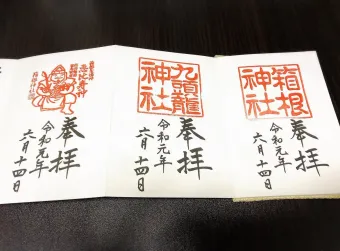 箱根
神社
奉拝
令和元年
六月十四日
九頭龍
神社
奉拝
令和元年
六月十四日
恵比寿神
奉拝
令和元年
六月十四日